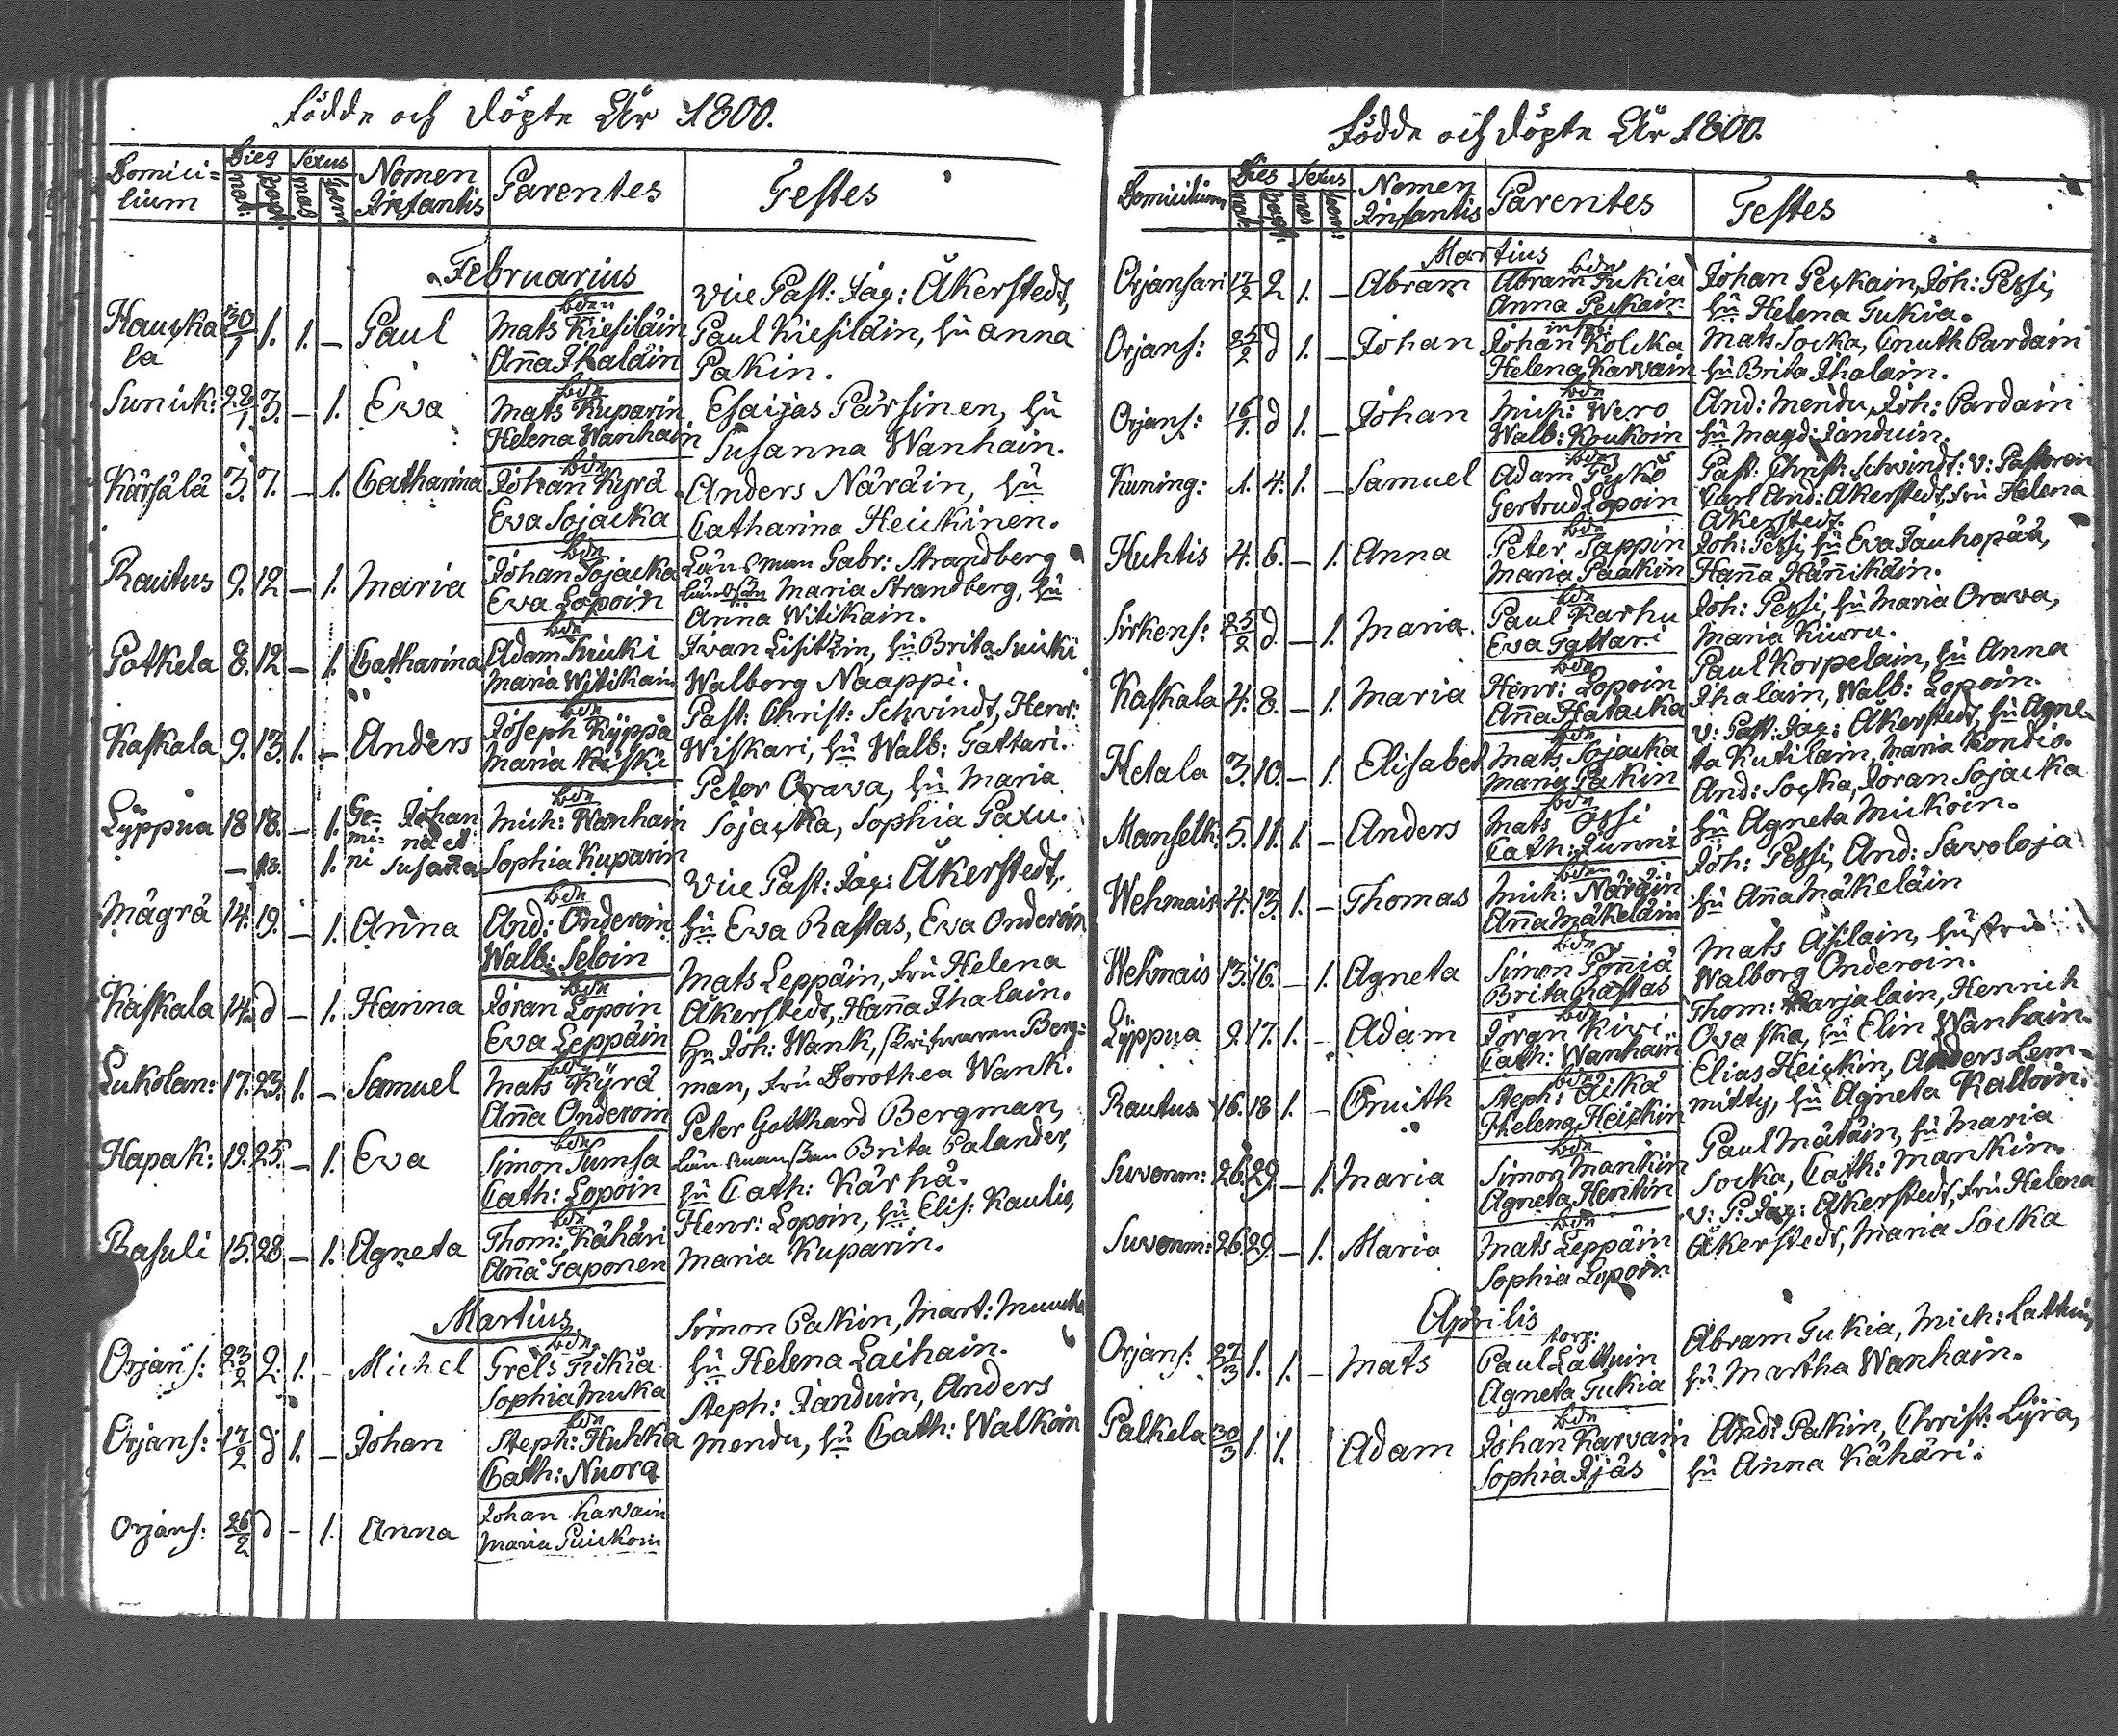 Födde och döpte År 1800.
Domicilium Dies nat: bapt: Sexus mas foem: Nomen Infantis Parentes Testes
Februarius
Hauckala 30/1 1. 1. – Paul bdn Mats Kiesiläin Anna Ihalain Vice Past: Jac: Åkerstedt, Paul Kiesiläin, hu Anna Pakin.
Sunick: 28/1 3. – 1. Eva bdn Mats Kuparin Helena Wanhain Esaijas Pärsinen, hu Susanna Wanhain.
Kärsälä 3. 7. – 1. Catharina bdn Johan Kyrä Eva Sojacka Anders Näräin, hu Catharina Heickinen.
Rautus 9. 12 – 1. Maria bdn Johan Sojacka Eva Lopoin Länsman Gabr: Strandberg Maria Strandberg, hu Anna Witikain.
Potkela 8. 12 – 1. Catharina bdn Adam Suicki Maria Witikain Ivan Lisitzin, hu Brita Suicki Walborg Naappi.
Kaskala 9. 13. 1. – Anders bdn Joseph Kyppä Maria Kiiski Past: Christ: Schvindt, Henr: Wiskari, hu Walb: Tattari.
Lyppua 18 18. – 1. Gemini Johanna et bdn Mich: Wanhain Peter Orava, hu Maria
– 18. 1. Susanna Sophia Kuparin Sojacka, Sophia Paxu.
Mägrä 14. 19. – 1. Anna bdn And: Onderoin Walb: Seloin Vice Past: Jac: Åkerstedt, hu Eva Rastas, Eva Onderoin
Kaskala 14. d – 1. Hanna bdn Jöran Lopoin Eva Leppäin Mats Leppäin, fru Helena Åkerstedt, Hanna Ihalain.
Lukolan: 17. 23. 1. – Samuel bdn Mats Kyrä Anna Onderoin Hr Joh: Wank, Skrifvaren Bergman, fru Dorothea Wank.
Hapak: 19. 25. – 1. Eva bdn Simon Sumsa Cath: Lopoin Peter Gotthard Bergman, Brita Palander, hu Cath: Kärhä.
Rasuli 15. 28. – 1. Agneta bdn Thom: Kähäri Anna Taponen Henr: Lopoin, hu Elis: Kaulio, Maria Kuparin.
Martius
Orjans: 23/2 2. 1. – Michel bdn Grels Tukia Sophia Muka Simon Pakin, Mart: hu Helena Laihain.
Orjans: 17/2 d 1. – Johan bdn Steph: Huhka Cath: Nuora Steph: Janduin, Anders Mendu, hu Cath: Walkoin
Orjans: 26/2 d – 1. Anna Johan Karvain Maria Puickoin
Födde och döpte År 1800.
Domicilium Dies nat: bapt: Sexus mas foem: Nomen Infantis Parentes Testes
Martius
Orjansari 17/2 2 1. – Abram bdn Abram Tukia Anna Peckain Johan Peckain, Joh: Pessi, hu Helena Tukia.
Orjans: 25/2 d 1. – Johan Johan Kolcka Helena Karvain Mats Socka, Cnuth Pardain hu Brita Ihalain.
Orjans: d 1. – Johan bdn Mich: Wero Walb: Koukoin And: Mendu, Joh: Pardain hu Magd: Janduin.
Kuning: 1. 4. 1. – Samuel bdn Adam Tyskö Gertrud Lopoin Past: Christ: Schvindt: v: Pastoren Carl And: Åkerstedt, fru Helena Åkerstedt.
Huhtis 4. 6. – 1. Anna bdn Peter Sappin Maria Paakin Joh: Pessi, hu Eva Jauhopää, Hanna Hännikäin.
Sirkens: 25/2 d. – 1. Maria bdn Paul Karhu Eva Tattari Joh: Pessi, hu Maria Orava, Maria Kiuru.
Kaskala 4. 8. – 1. Maria bdn Henr: Lopoin Anna Hatacka Paul Korpelain, hu Anna Ihalain, Walb: Lopoin.
Ketala 3. 10. – 1. Elisabet bdn Mats Sojacka Maria Pakin v: Past: Jac: Åkerstedt, hu Agneta Kutilain, Maria Kondio.
Manselk: 5. 11. 1. – Anders bdn Mats Ossi Cath: Junni And: Socka, Jöran Sojacka hu Agneta Mickoin.
Wehmais 4. 13. 1. – Thomas bdn Mich: Näräin Anna Mäkeläin Joh: Pessi, And: Savoloja hu Anna Mäkeläin
Wehmais 13. 16. – 1. Agneta bdn Simon Pönniä Brita Rastas Mats Asilain, hustru Walborg Onderoin.
Lyppua 9. 17. 1. – Adam bdn Jöran Kivi Cath: Wanhain Thom: Karjalain, Henrich Ovaska, hu Elin Wanhain.
Rautus 16. 18 1. – Cnuth bdn Steph: Äikä Helena Heickin Elias Heickin, Anders Lemmitty, hu Agneta Kalloin.
Suvenm: 26. 29. – 1. Maria bdn Simon Mankin Agneta Hentin Paul Mätäin, hu Maria Socka, Cath: Mankin.
Suvenm: 26. 29. – 1. Maria bdn Mats Leppäin Sophia Lopoin v: P: Jac: Åkerstedt, fru Helena Åkerstedt, Maria Socka
Aprilis
Orjans: 27/3 1. 1. – Mats torp: Paul Lattuin Agneta Tukia Abram Tukia, Mich: Lattuin, hu Martha Wanhain.
Palkela 30/3 1. 1. Adam bdn Johan Karvain Sophia Ijäs And: Pakin, Christ: Lyra, hu Anna Kähäri.